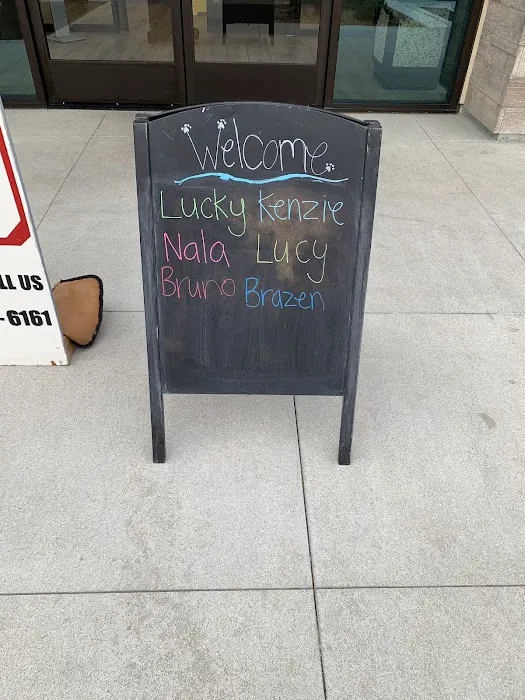 Welcome
Lucky Kenzie
Nala Lucy
Bruno Brazen
LL US
-6161